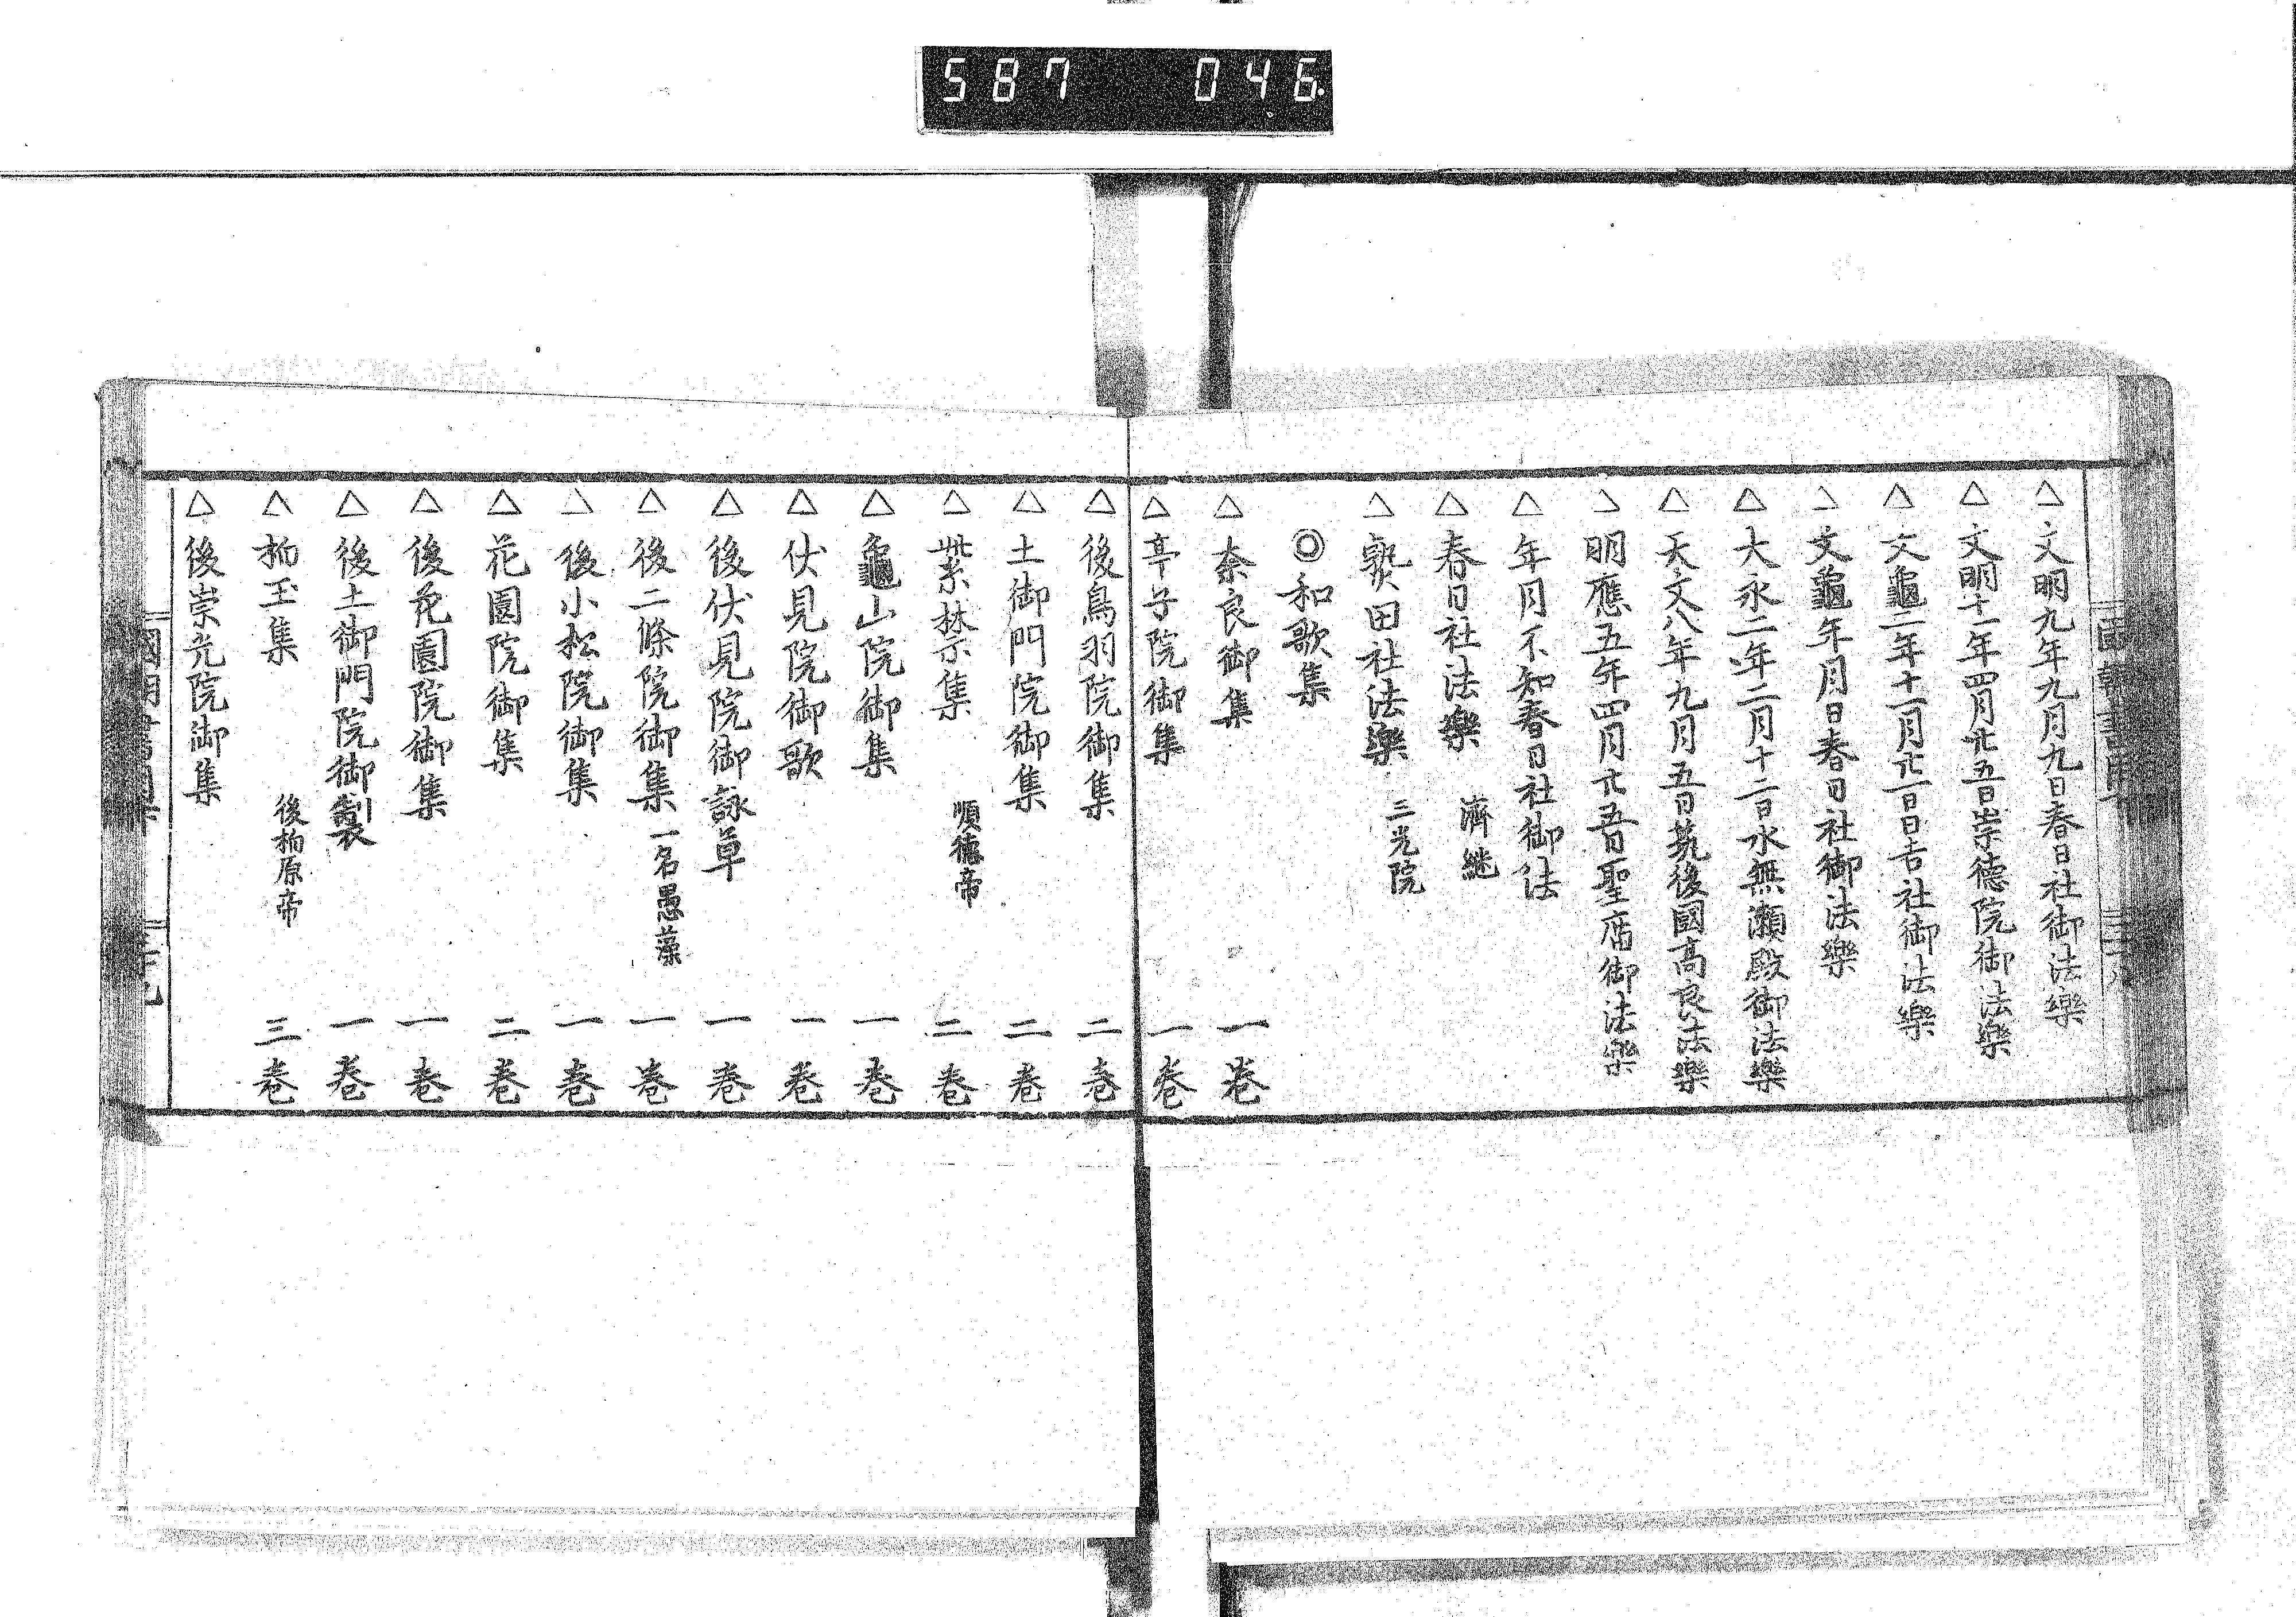 587 046
△文明九年九月九日春日社御法樂
△文明十一年四月廿五日崇德院御法樂
△文龜二年十一月廿一日日吉社御法樂
△文龜年月日春日社御法樂
△大永二年二月十二日水無瀬殿御法樂
△天文八年九月五日筑後國高良法樂
△明應五年四月廿五日聖庿御法樂
△年月不知春日社御法
△春日社法樂 濟継
△熱田社法樂 三光院
◎和歌集
△奈良御集 一巻
△亭子院御集 一巻
△後鳥羽院御集 二巻
△土御門院御集 二巻
△紫禁集 順德帝 二巻
△龜山院御集 一巻
△伏見院御歌 一巻
△後伏見院御詠草 一巻
△後二條院御集 一名愚藻 一巻
△後小松院御集 一巻
△花園院御集 二巻
△後花園院御集 一巻
△後土御門院御製 一巻
△柏玉集 後柏原帝 三巻
△後崇光院御集